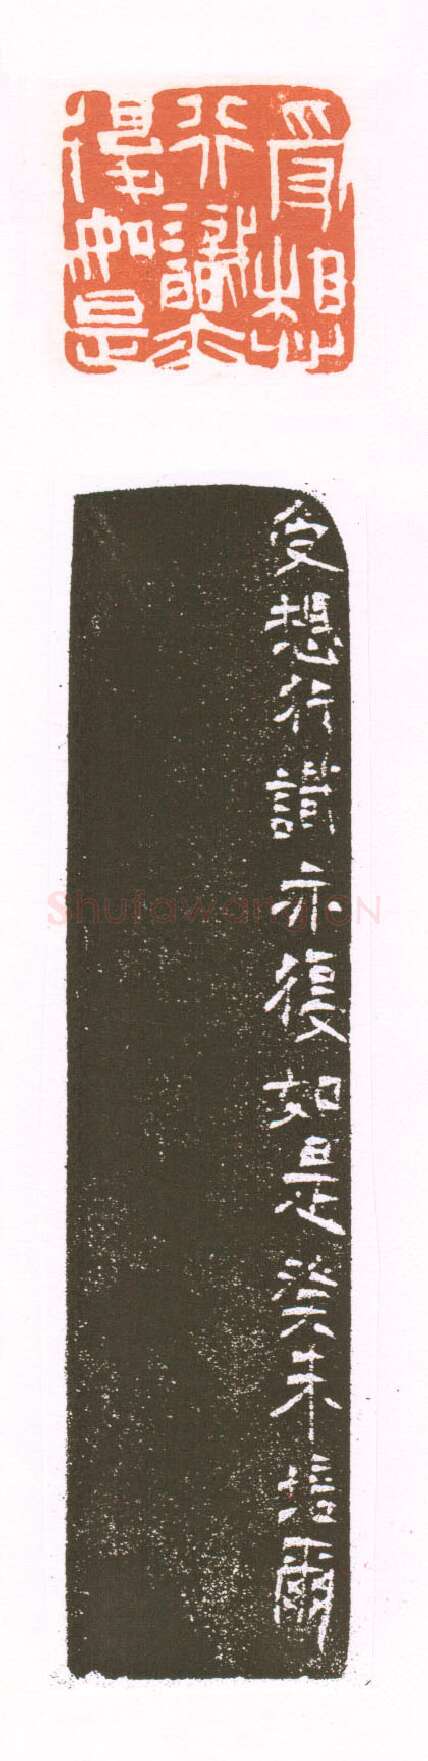 受想
行識亦
復如是
受想行識亦復如是癸未培爾
Shufawang.CN